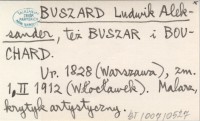 BUSZARD Ludwik Alek-
sander, też BUSZAR i BOU-
CHARD.
Ur. 1828 (Warszawa), zm.
1.II 1912 (Włocławek). Malarz,
krytyk artystyczny.